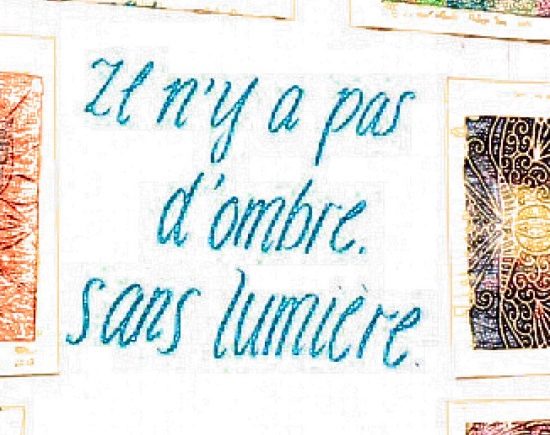 Il n'y a pas
d'ombre.
sans lumière.